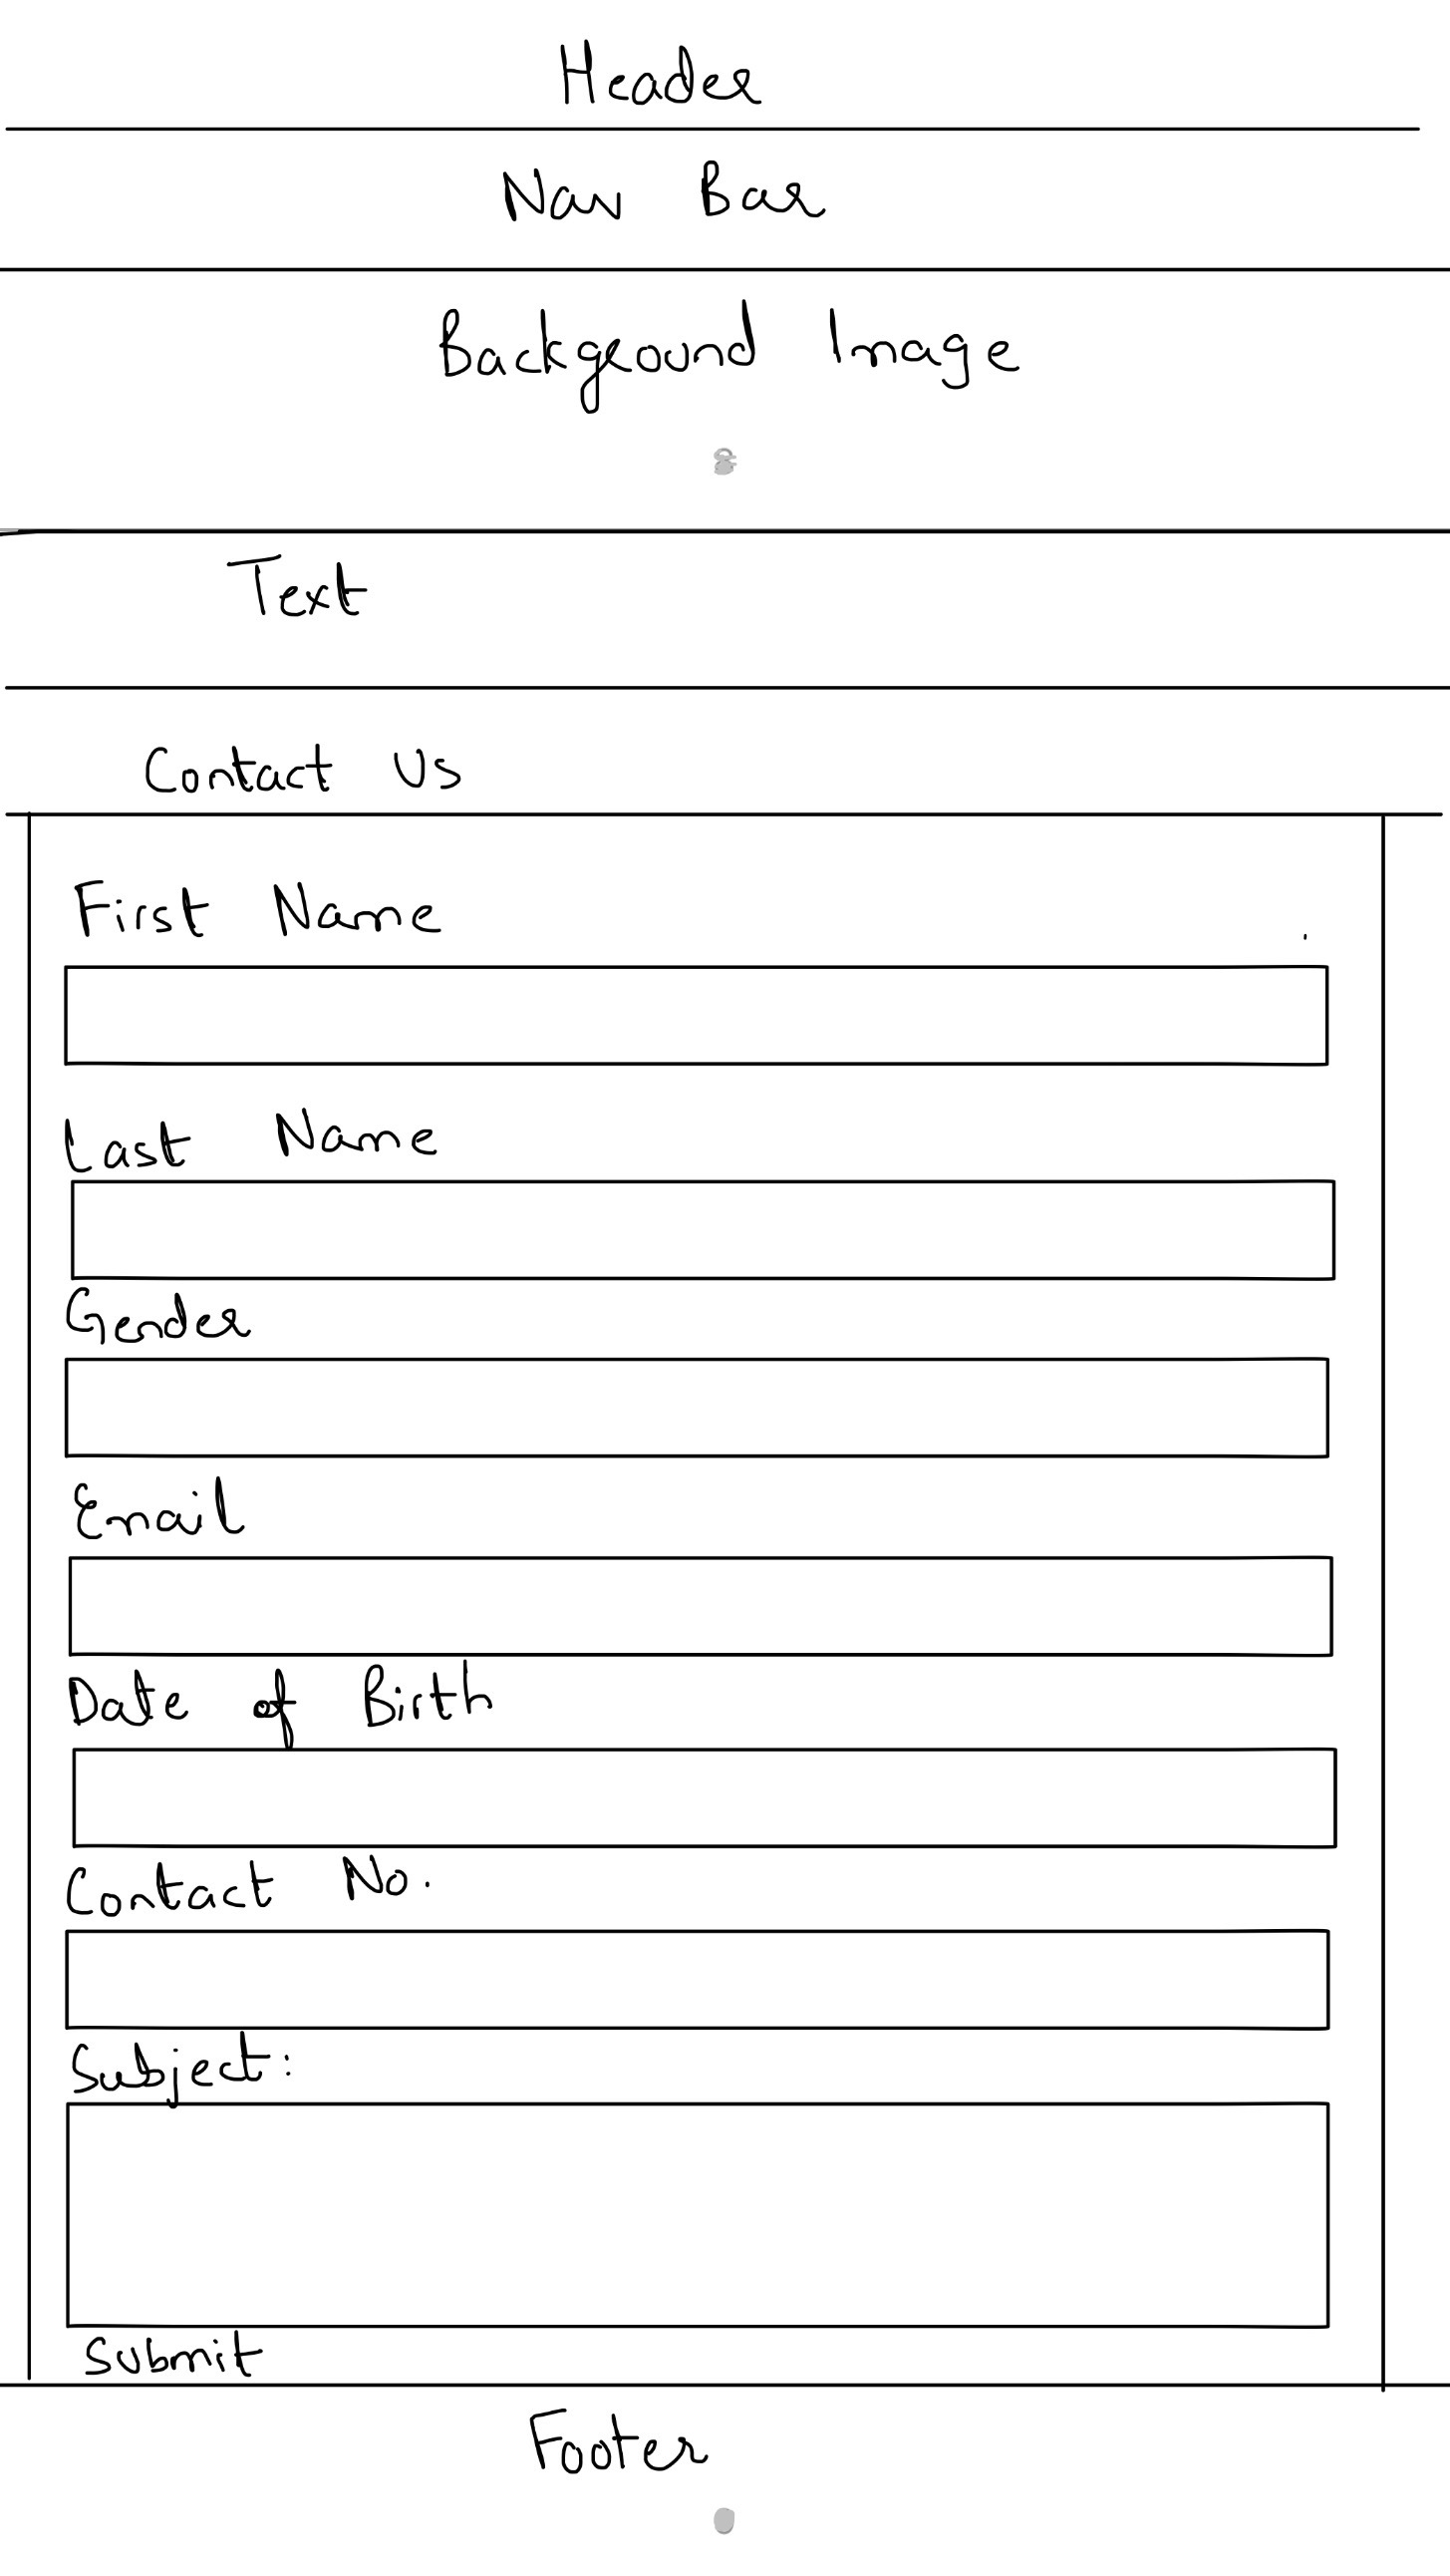 Header
Nav Bar
Background Image
Text
Contact Us
First Name
Last Name
Gender
Email
Date of Birth
Contact No.
Subject:
Submit
Footer